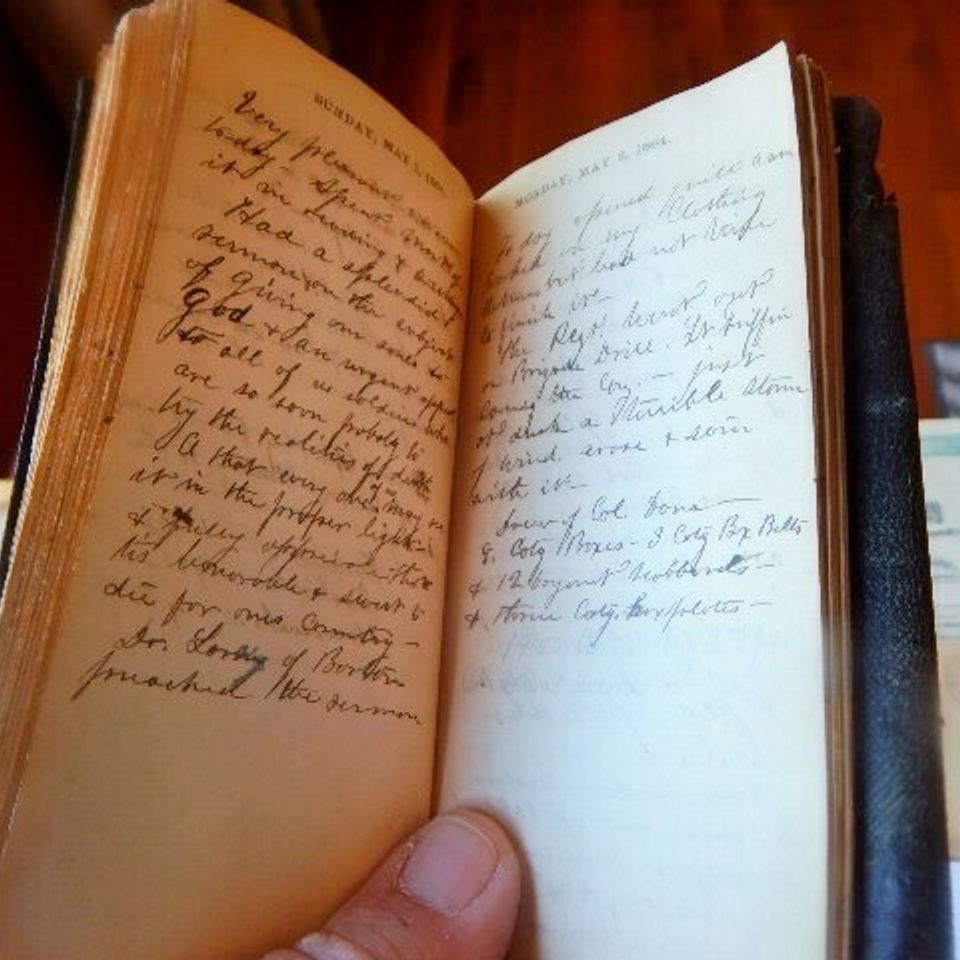 SUNDAY, MAY 1, 1864.
Very pleasant
today - Spent most of
it in reading &
Had a splendid
sermon on the subject
of giving our souls to
God & an urgent appeal
to all of us soldiers who
are so soon probaly to
try the realities of death
& that every one may see
it in the proper light -
&
tis honorable & sweet to
die for ones Country -
Dr. of Boston
preached the sermon
MONDAY, MAY 2, 1864.
To day opened quite warm
worked on my Clothing
but had not time
to finish it -
The Regt went out
on Brigade Drill. Lt. Griffin
Comdg the Co. - just
at dusk a Terrible storm
of wind arose & rain
with it -
Drew of Col Dana
8. Ctg Boxes - 3 Ctg Bx Belts
& 12 bayonet scabbards -
& three Ctg. box plates -